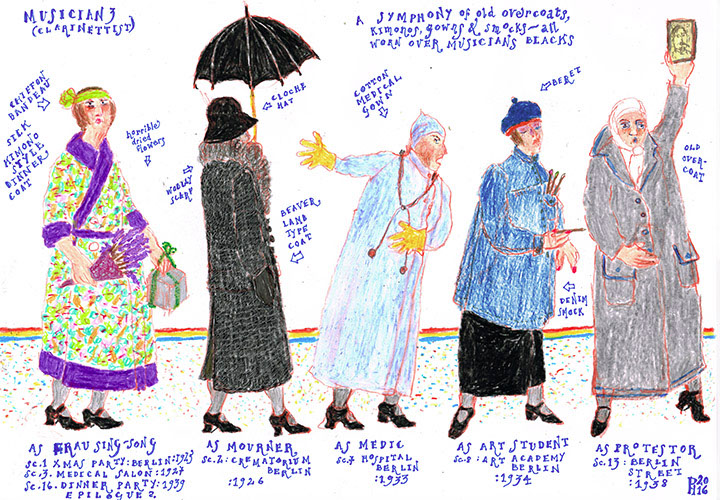 MUSICIAN 3
(CLARINETTIST)
A SYMPHONY of old overcoats,
KIMONOS, GOWNS & SMOCKS—all
WORN OVER MUSICIANS BLACKS
CHIFFON
BANDEAU
SILK
KIMONO
STYLE
DINNER
COAT
horrible
dried
flowers
CLOCHE
HAT
WOOLLY
SCARF
BEAVER
LAMB
TYPE
COAT
COTTON
MEDICAL
GOWN
BERET
DENIM
SMOCK
OLD
OVER-
COAT
AS FRAU SINGSONG
SC.1 XMAS PARTY: BERLIN: 1923
SC.3. MEDICAL SALON: 1927
SC.16. DINNER PARTY: 1939
EPILOGUE 2.
AS MOURNER
SC.2: CREMATORIUM
BERLIN
:1926
AS MEDIC
SC.7 HOSPITAL,
BERLIN
:1933
AS ART STUDENT
SC.8: ART ACADEMY
BERLIN
:1934
AS PROTESTOR
SC.13: BERLIN
STREET
:1938
2016